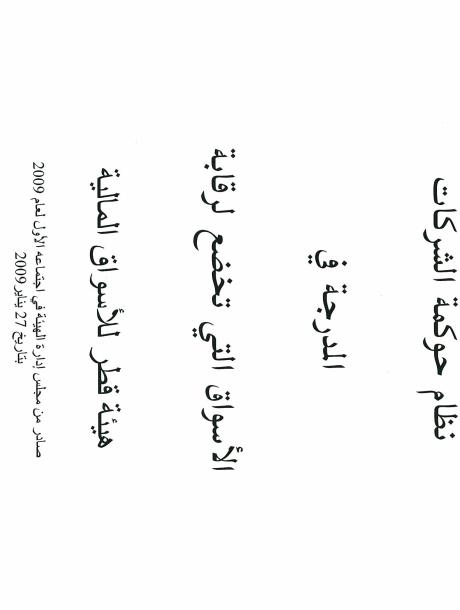 نظام حوكمة الشركات
المدرجة في
الأسواق التي تخضع لرقابة
هيئة قطر للأسواق المالية
صادر من مجلس إدارة الهيئة في اجتماعه الأول لعام 2009
بتاريخ 27 يناير 2009